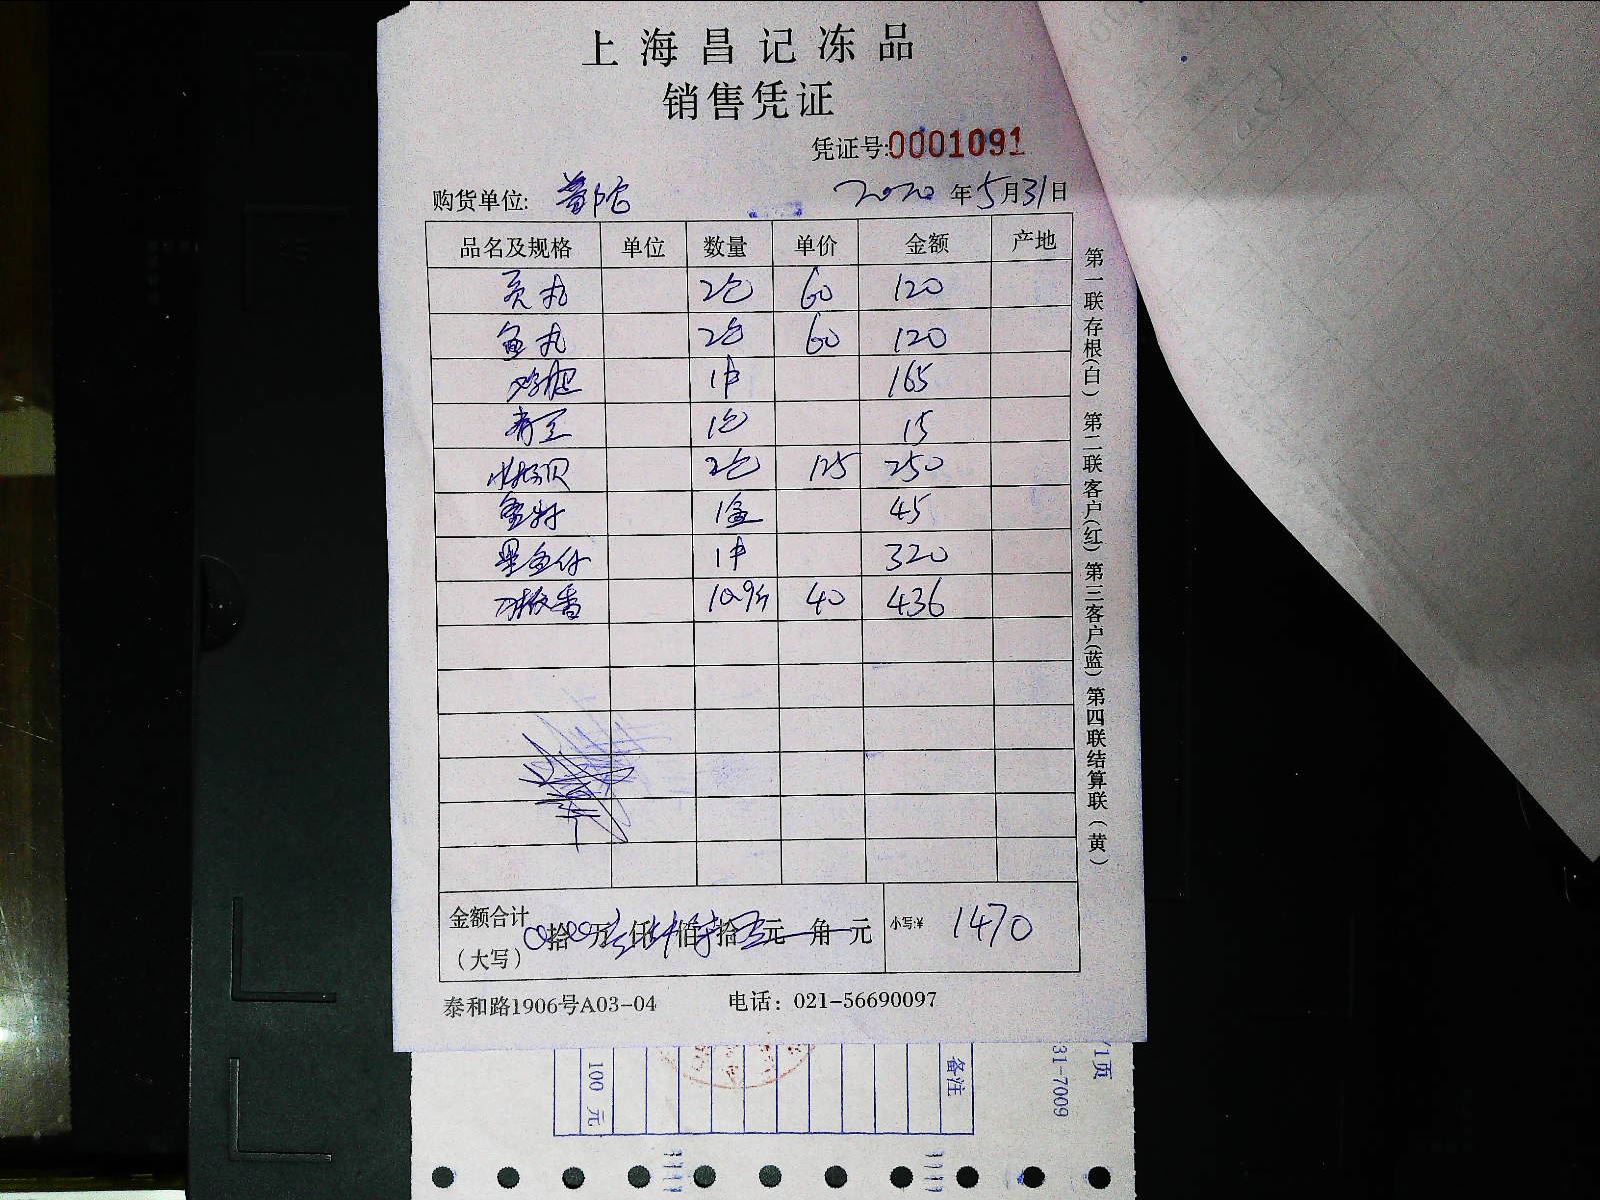 上海昌记冻品
销售凭证
凭证号:0001091
购货单位: 普陀 2020年5月31日
品名及规格 单位 数量 单价 金额 产地
贡丸 2包 60 120
鱼丸 2包 60 120
鸡腿 1件 165
青豆 1包 15
2包 125 250
1盒 45
1件 320
10.9斤 40 436
金额合计
(大写) 拾 万 仟 佰 拾 元 角 元 小写:¥ 1470
泰和路1906号A03-04 电话: 021-56690097
第一联存根(白) 第二联客户(红) 第三客户(蓝) 第四联结算联(黄)
100 元
备注
31-7009
/1页